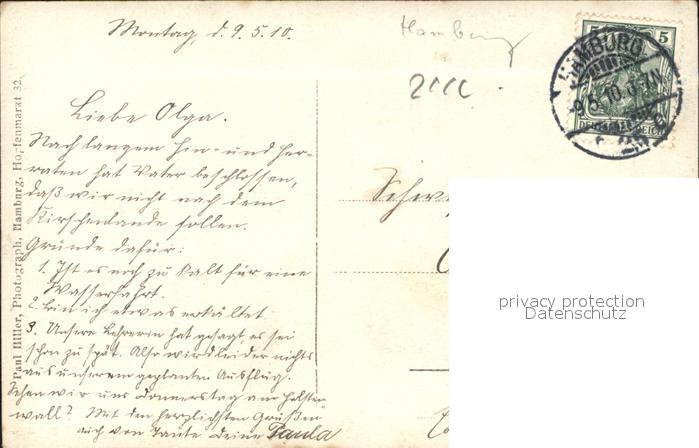 Montag, d. 9.5.10.
Hamburg
Liebe Olga.
Nach langem Hin- und Her-
raten hat Vater beschlossen,
daß wir nicht nach dem
Kirschenlande sollen.
Gründe dafür:
1. Ist es noch zu kalt für eine
Wasserfahrt.
2. bin ich etwas erkältet
3. Unsere Lehrerin hat gesagt, es sei
schon zu spät. Also wird leider nichts
aus unserem geplanten Ausflug.
Sehen wir uns Donnerstag am Holsten
wall? Mit den herzlichsten Grüßen
auch von Tante Deine Paula
Paul Hiller, Photograph, Hamburg, Hopfenmarkt 32.
5 5
HAMBURG
9.5.10. 6-7N
DEUTSCHES REICH
Schw
privacy protection
Datenschutz